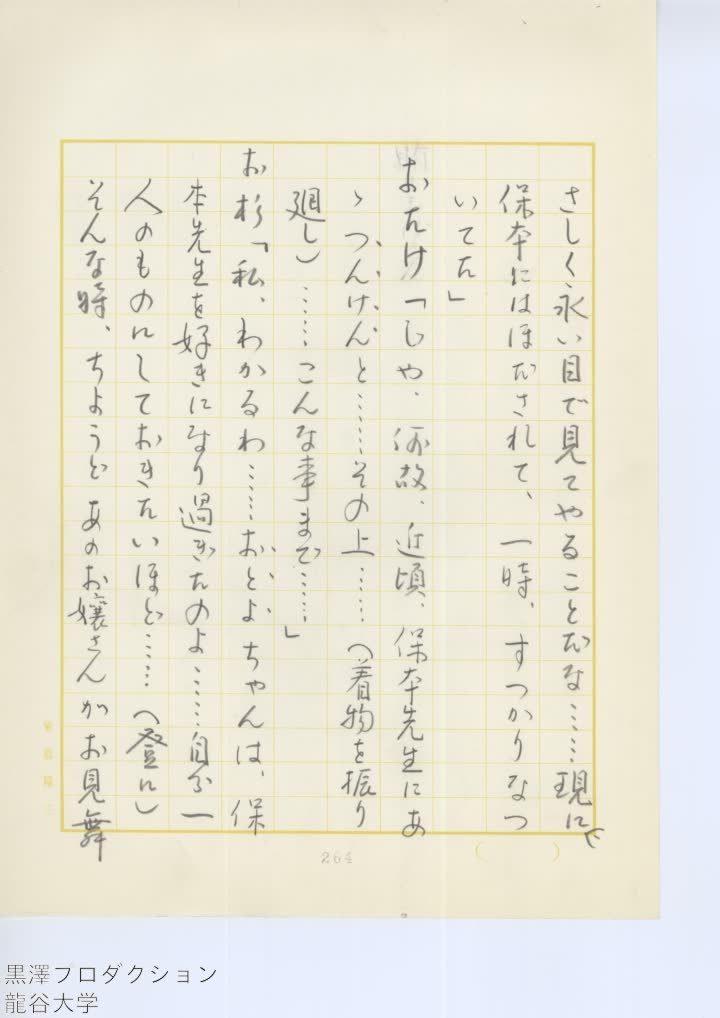 さしく永い目で見てやることだな……現に
保本にはほだされて、一時、すつかりなつ
いてた」
おたけ「じや、何故、近頃、保本先生にあ
ゝつんけんと……その上……（着物を振り
廻し）……こんな事まで……」
お杉「私、わかるわ……おとよちやんは、保
本先生を好きになり過ぎたのよ……自分一
人のものにしておきたいほど……（登に）
そんな時、ちようどあのお嬢さんがお見舞
264
（　　　）
黒澤プロダクション
龍谷大学